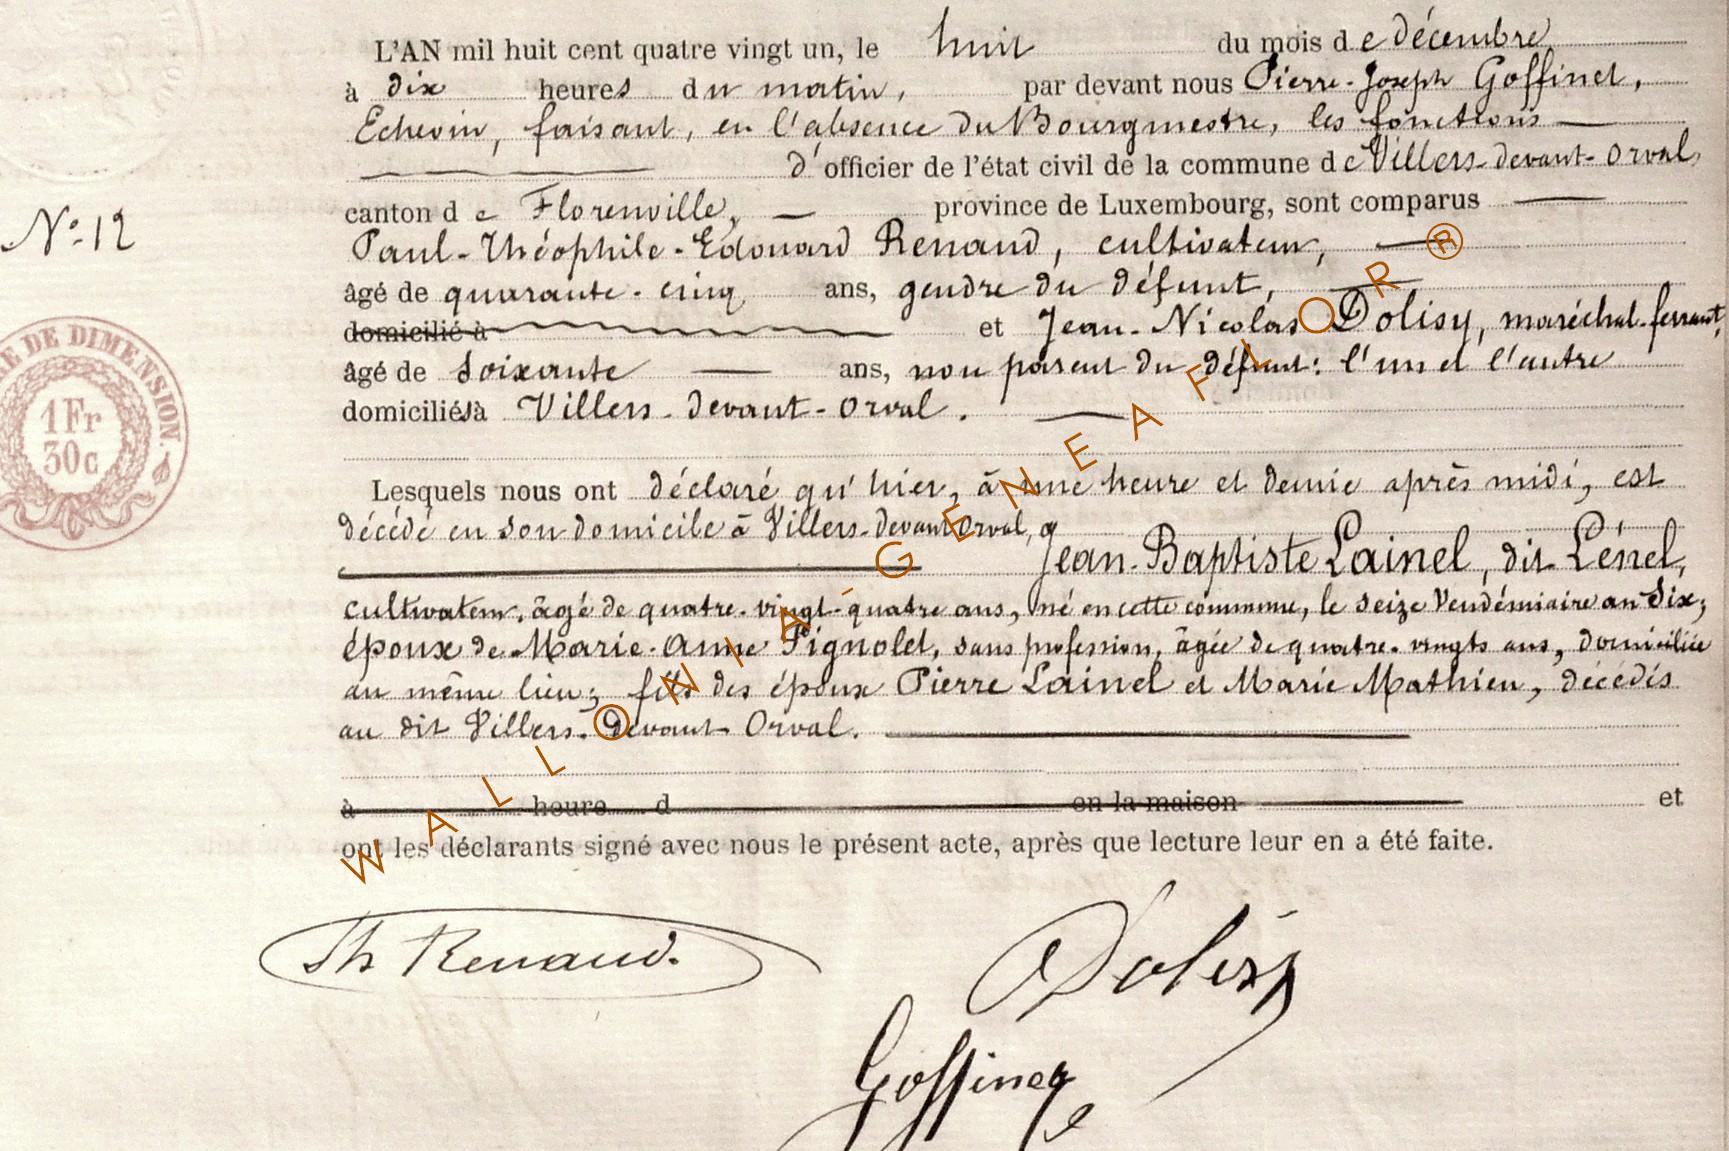 L'AN mil huit cent quatre vingt un, le huit du mois de décembre
à dix heures du matin, par devant nous Pierre-Joseph Goffinet,
Echevin, faisant, en l'absence du Bourgmestre, les fonctions
d'officier de l'état civil de la commune de Villers-devant-Orval,
canton de Florenville, province de Luxembourg, sont comparus
N° 12
Paul-Théophile-Edouard Renaud, cultivateur,
âgé de quarante-cinq ans, gendre du défunt,
domicilié à et Jean-Nicolas Dolisy, maréchal-ferrant,
âgé de soixante ans, non parent du défunt: l'un et l'autre
domiciliés à Villers-devant-Orval.
RE DE DIMENSION.
1 Fr
30c
Lesquels nous ont déclaré qu'hier, à une heure et demie après midi, est
décédé en son domicile à Villers-devant Orval,
Jean-Baptiste Lainel, dit Lénel,
cultivateur, âgé de quatre-vingt-quatre ans, né en cette commune, le seize Vendémiaire an dix;
époux de Marie-Anne Pignolet, sans profession, âgée de quatre-vingts ans, domiciliée
au même lieu; fils des époux Pierre Lainel et Marie Mathieu, décédés
au dit Villers-devant-Orval.
à heure d en la maison et
ont les déclarants signé avec nous le présent acte, après que lecture leur en a été faite.
Th Renaud.
Dolisy
Goffinet
WALLONIA-GENEAFLOR®